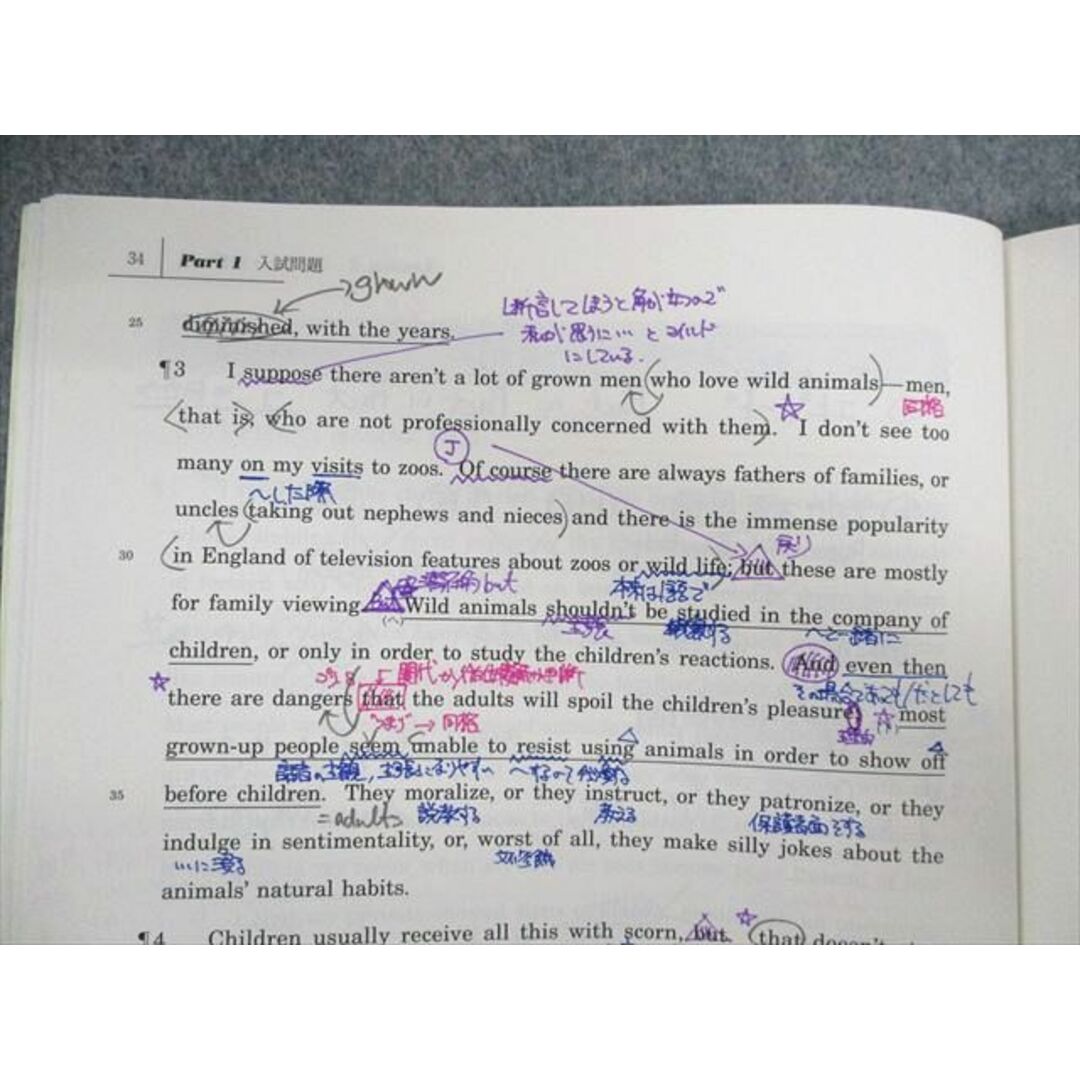 34 Part 1 入試問題
grown
断言してしまうと角が立つので
25 diminished, with the years.
私が思うに… とマイルド
にしている.
¶3 I suppose there aren't a lot of grown men (who love wild animals)—men,
同格
〈that is, who are not professionally concerned with them〉. ☆ I don't see too
many on my visits to zoos. Of course there are always fathers of families, or
〜した際
uncles (taking out nephews and nieces) and there is the immense popularity
戻り
30 (in England of television features about zoos or wild life; but these are mostly
but
for family viewing. Wild animals shouldn't be studied in the company of
主張 観察する 〜と一緒に
children, or only in order to study the children's reactions. And even then
☆ there are dangers that the adults will spoil the children's pleasure; ☆ most
つまり → 同格
grown-up people seem unable to resist using animals in order to show off
35 before children. They moralize, or they instruct, or they patronize, or they
= adults 説教する 教える 保護者面をする
indulge in sentimentality, or, worst of all, they make silly jokes about the
animals' natural habits.
¶4 Children usually receive all this with scorn, but ☆ that doesn't